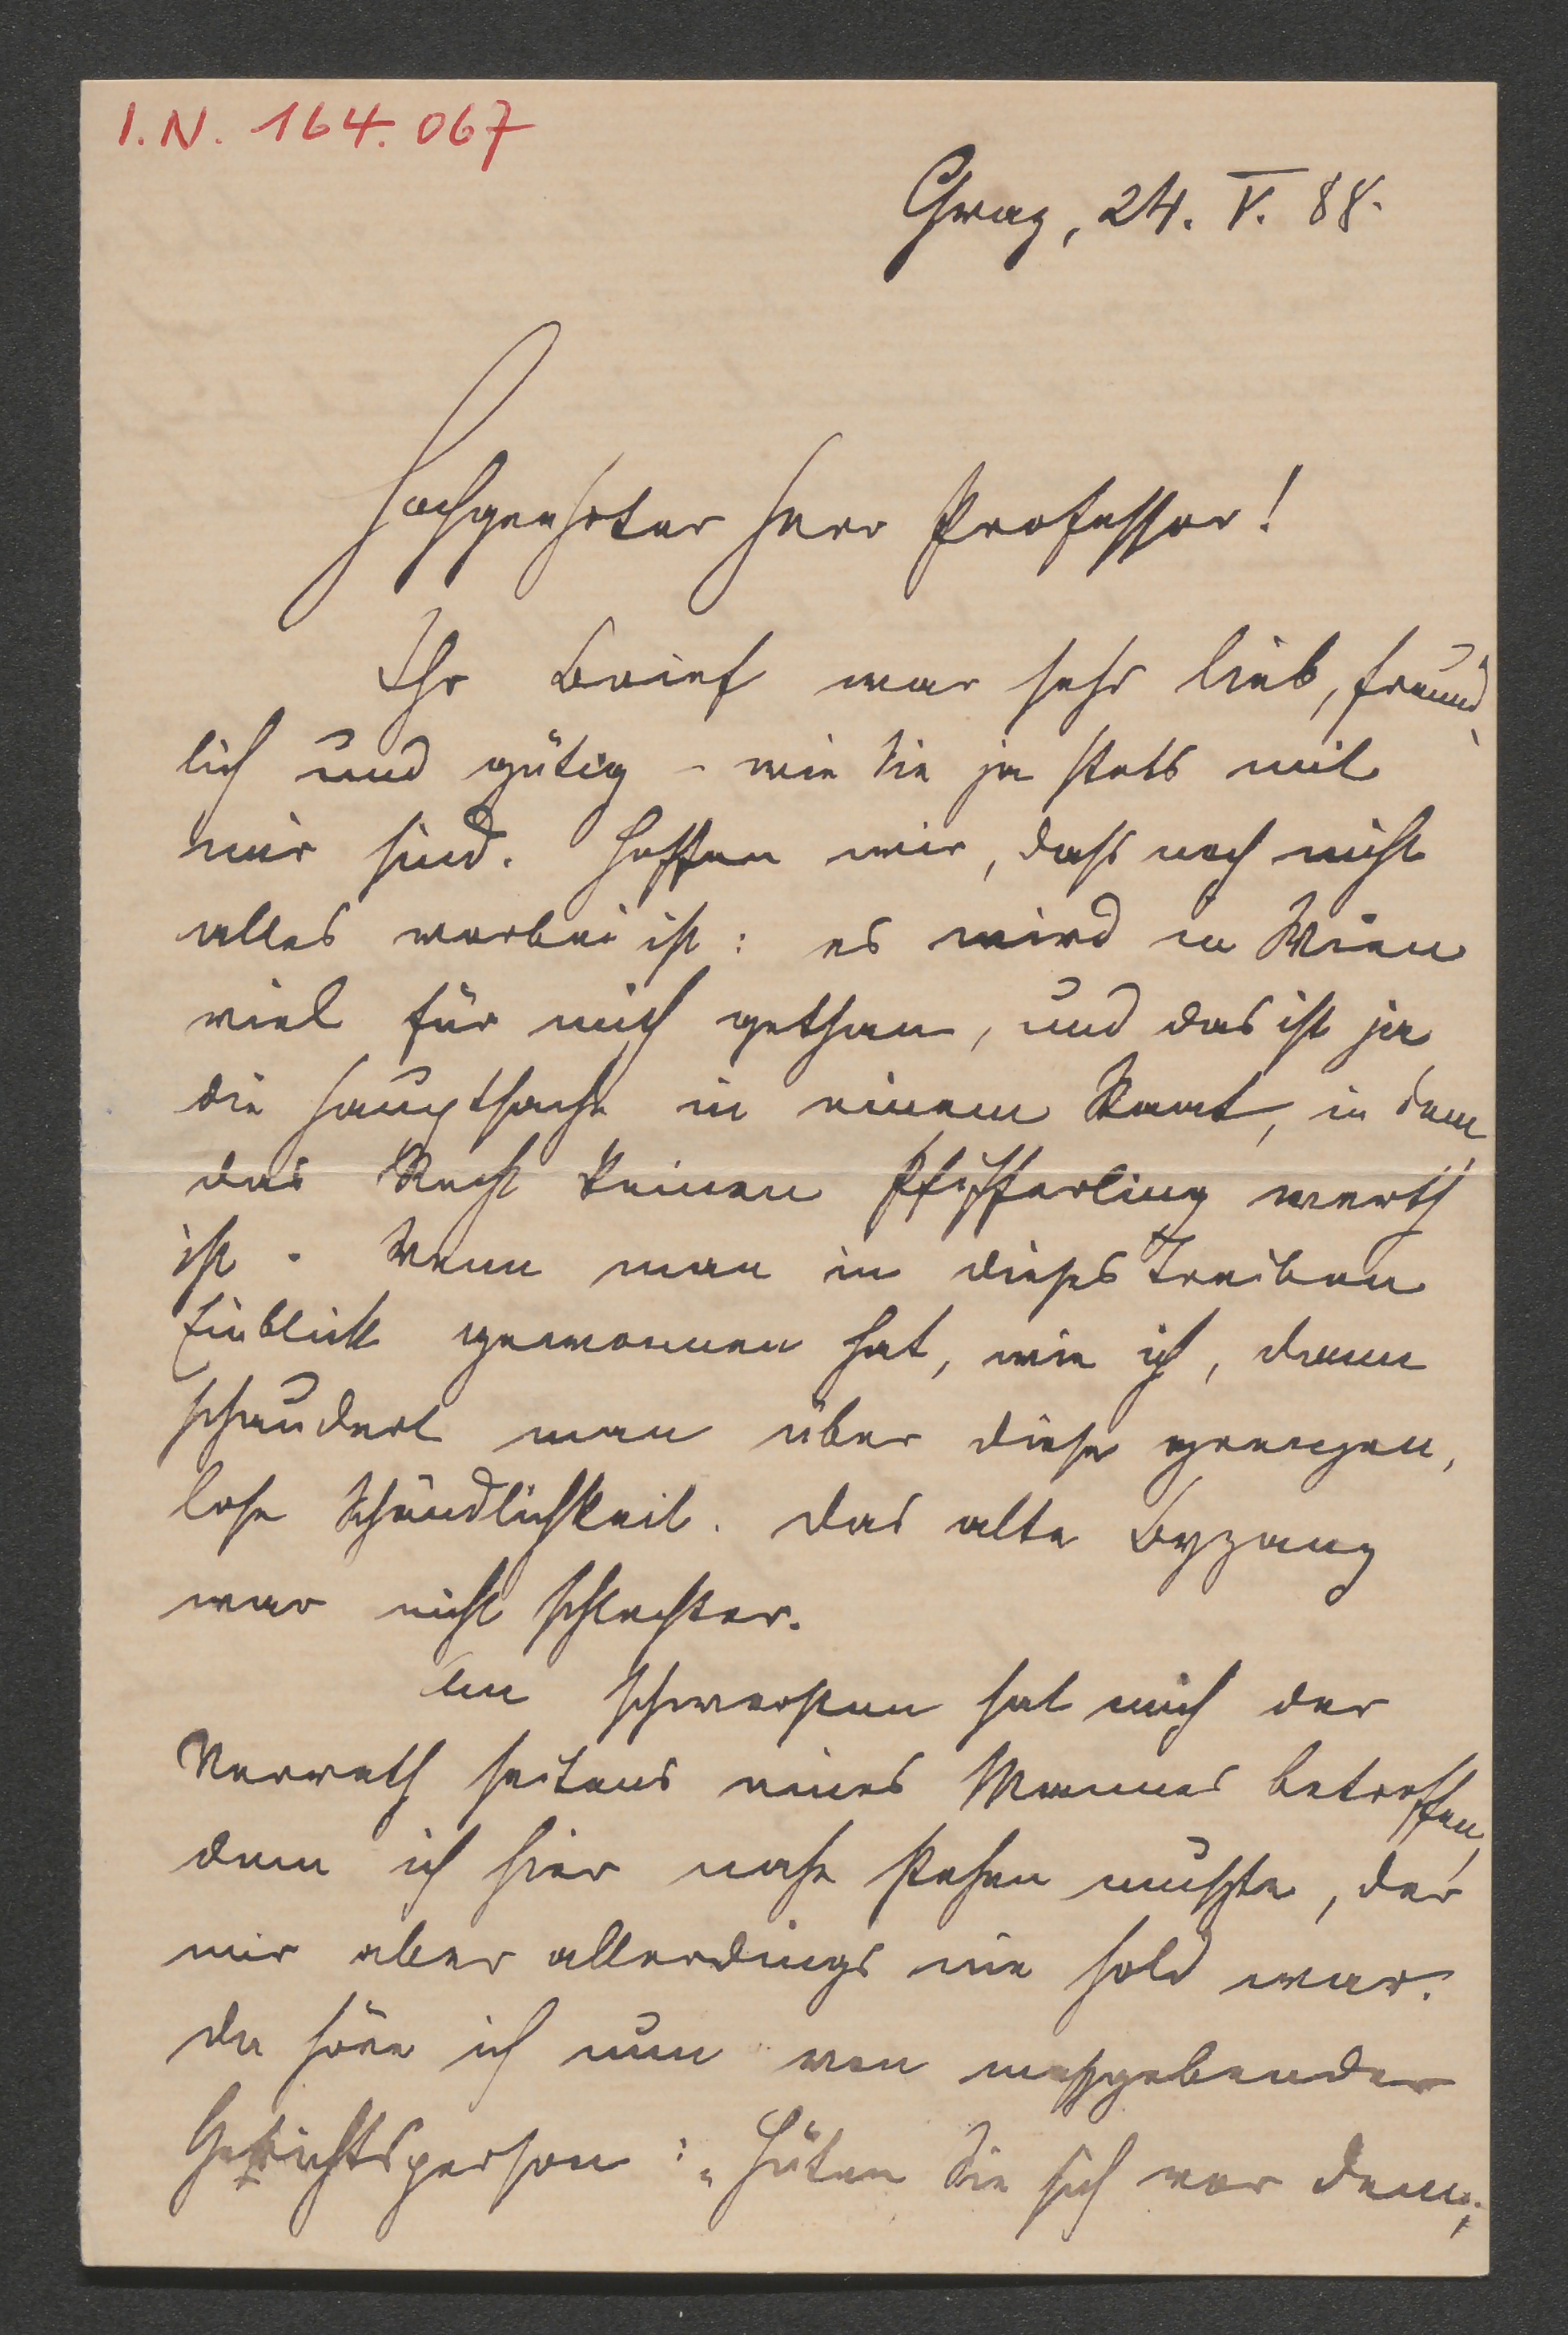 I.N. 164.067
Graz, 24. V. 88.
Hochgeehrter Herr Professor!
Ihr Brief war sehr lieb, freund-
lich und gütig – wie Sie ja stets mit
mir sind. Hoffen wir, dass noch nicht
alles vorbei ist: es wird in Wien
viel für mich gethan, und das ist ja
die Hauptsache in einem Staat, in dem
das Recht keinen Pfifferling werth
ist. Wenn man in dieses Treiben
Einblick gewonnen hat, wie ich, dann
schaudert man über diese grenzen-
lose Schändlichkeit. Das alte Byzanz
war nicht schlechter.
Am schwersten hat mich der
Verrath seitens eines Mannes betroffen,
dem ich hier nahe stehen mußte, der
mir aber allerdings nie hold war.
Da höre ich nun von maßgebender
Gerichtsperson: „Hüten Sie sich vor dem,